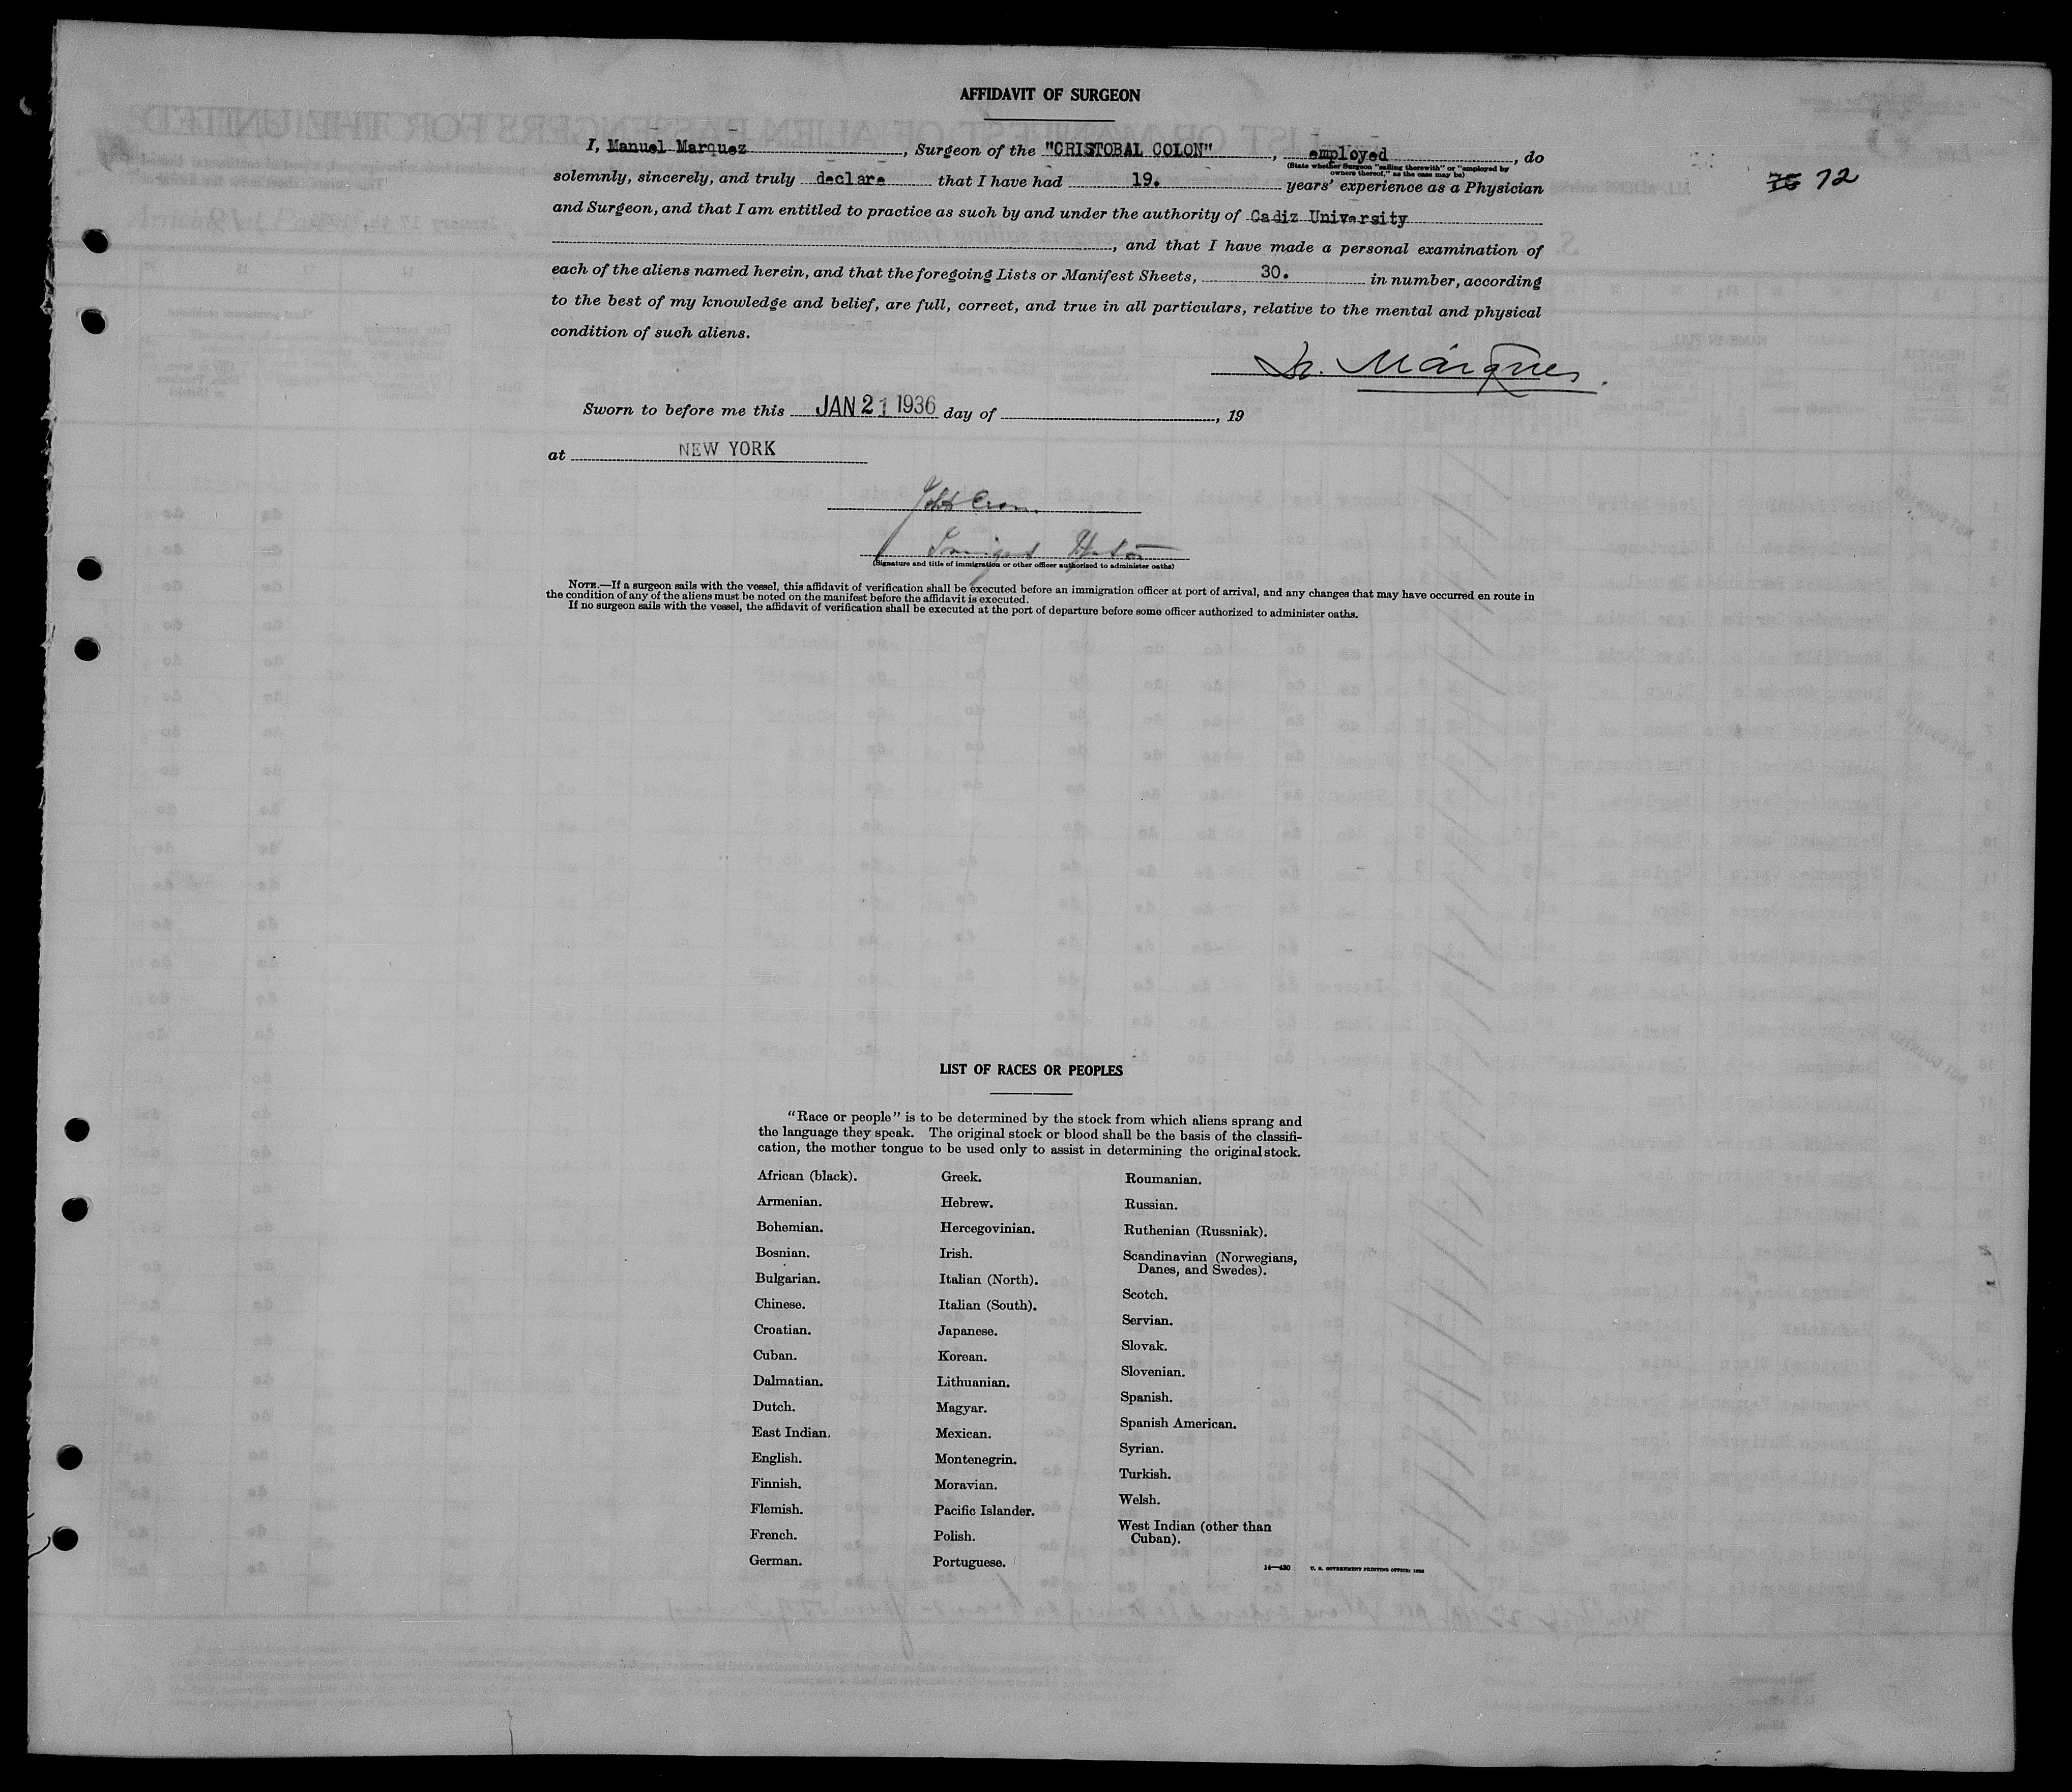 AFFIDAVIT OF SURGEON
72
I, Manuel Marquez, Surgeon of the "CRISTOBAL COLON", employed, do
(State whether Surgeon "sailing therewith" or "employed by
owners thereof," as the case may be)
solemnly, sincerely, and truly declare that I have had 19. years' experience as a Physician
and Surgeon, and that I am entitled to practice as such by and under the authority of Cadiz University
, and that I have made a personal examination of
each of the aliens named herein, and that the foregoing Lists or Manifest Sheets, 30. in number, according
to the best of my knowledge and belief, are full, correct, and true in all particulars, relative to the mental and physical
condition of such aliens.
Dr. Márquez
Sworn to before me this JAN 21 1936 day of , 19
at NEW YORK
(Signature and title of immigration or other officer authorized to administer oaths)
NOTE.—If a surgeon sails with the vessel, this affidavit of verification shall be executed before an immigration officer at port of arrival, and any changes that may have occurred en route in
the condition of any of the aliens must be noted on the manifest before the affidavit is executed.
If no surgeon sails with the vessel, the affidavit of verification shall be executed at the port of departure before some officer authorized to administer oaths.
LIST OF RACES OR PEOPLES
"Race or people" is to be determined by the stock from which aliens sprang and
the language they speak. The original stock or blood shall be the basis of the classifi-
cation, the mother tongue to be used only to assist in determining the original stock.
African (black).
Armenian.
Bohemian.
Bosnian.
Bulgarian.
Chinese.
Croatian.
Cuban.
Dalmatian.
Dutch.
East Indian.
English.
Finnish.
Flemish.
French.
German.
Greek.
Hebrew.
Hercegovinian.
Irish.
Italian (North).
Italian (South).
Japanese.
Korean.
Lithuanian.
Magyar.
Mexican.
Montenegrin.
Moravian.
Pacific Islander.
Polish.
Portuguese.
Roumanian.
Russian.
Ruthenian (Russniak).
Scandinavian (Norwegians,
Danes, and Swedes).
Scotch.
Servian.
Slovak.
Slovenian.
Spanish.
Spanish American.
Syrian.
Turkish.
Welsh.
West Indian (other than
Cuban).
14—430 U. S. GOVERNMENT PRINTING OFFICE: